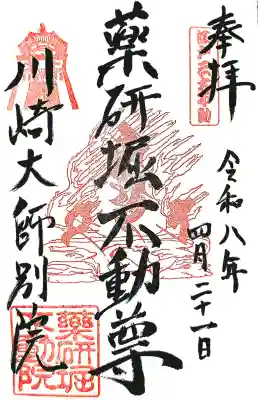 奉拝
令和八年
四月二十一日
藥研堀不動尊
川崎大師別院
藥研堀
不動院